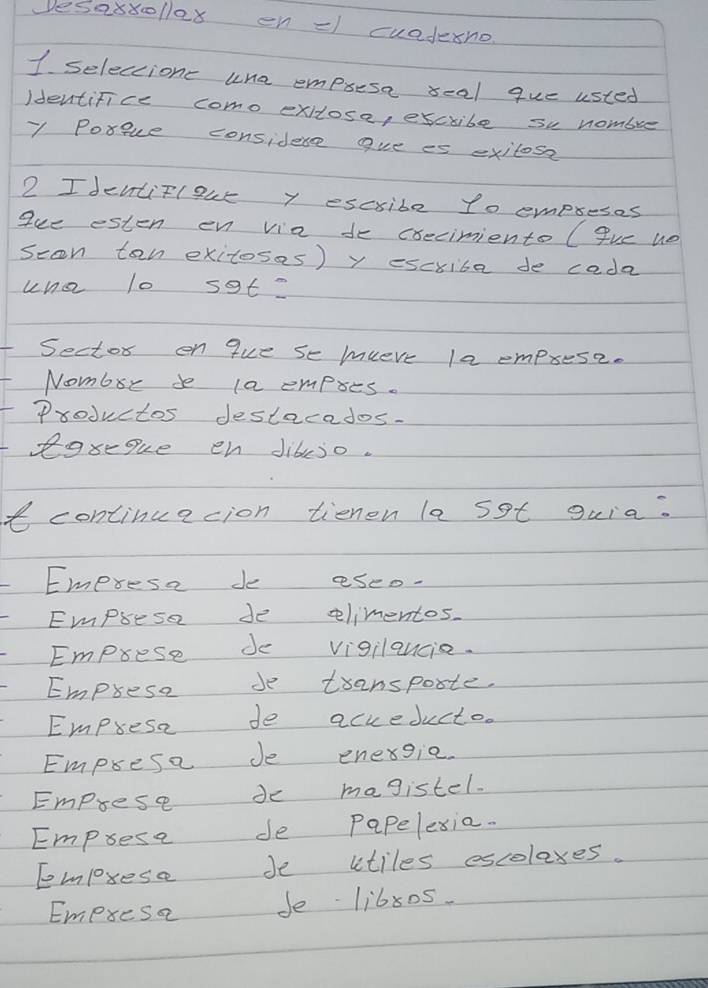 Desarrollar en el cuaderno.
1. Seleccione una empresa real que usted
identifice como exitosa, escriba su nombre
y Porque considera que es exitosa
2 Identifique y escriba 10 empresas
que esten en via de crecimiento (que no
sean tan exitosas) y escriba de cada
una lo sgt:
- Sector en que se mueve la empresa.
- Nombre de la empres.
- Productos destacados.
- Agregue en dibujo.
A continuacion tienen la sgt guia:
- Empresa de aseo.
- Empresa de alimentos.
- Empresa de vigilancia.
- Empresa de transporte.
- Empresa de acueducto.
Empresa de energia.
Empresa de magistel.
Empresa de Papeleria.
Empresa de utiles escolares.
Empresa de libros.